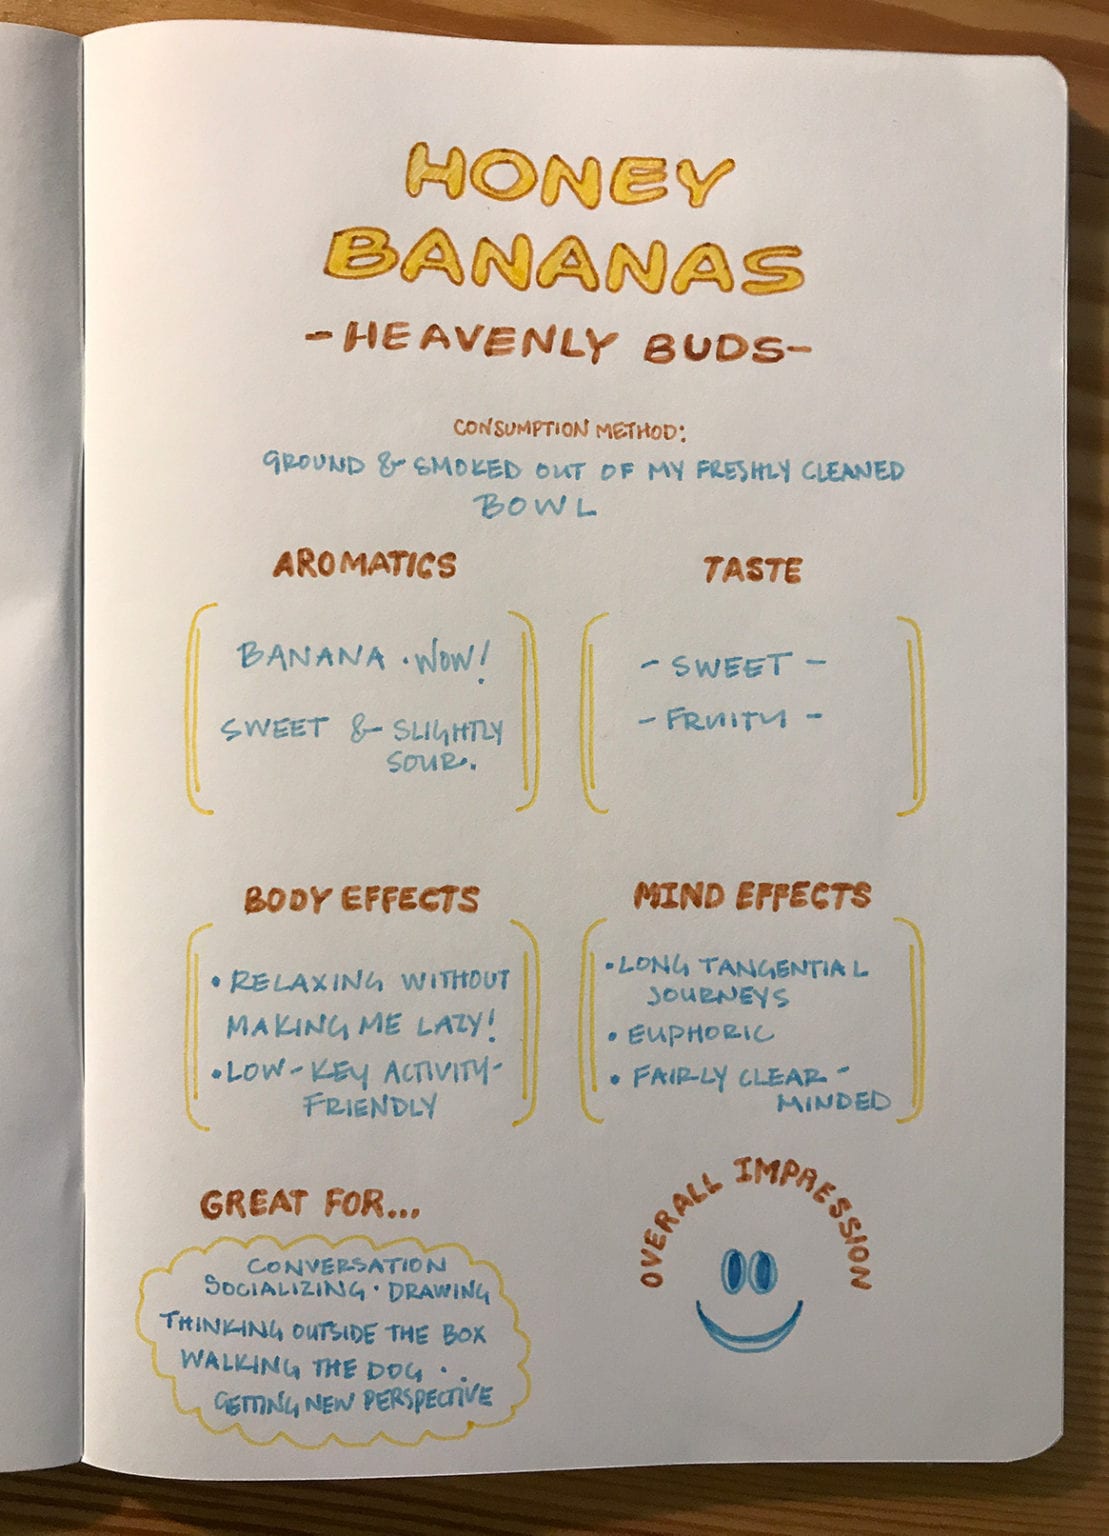 HONEY
BANANAS
-HEAVENLY BUDS-
CONSUMPTION METHOD:
GROUND & SMOKED OUT OF MY FRESHLY CLEANED
BOWL
AROMATICS
BANANA · WOW!
SWEET & SLIGHTLY
SOUR.
TASTE
- SWEET -
- FRUITY -
BODY EFFECTS
• RELAXING WITHOUT
MAKING ME LAZY!
• LOW-KEY ACTIVITY-
FRIENDLY
MIND EFFECTS
• LONG TANGENTIAL
JOURNEYS
• EUPHORIC
• FAIRLY CLEAR-
MINDED
GREAT FOR...
CONVERSATION
SOCIALIZING · DRAWING
THINKING OUTSIDE THE BOX
WALKING THE DOG ·
GETTING NEW PERSPECTIVE
OVERALL IMPRESSION